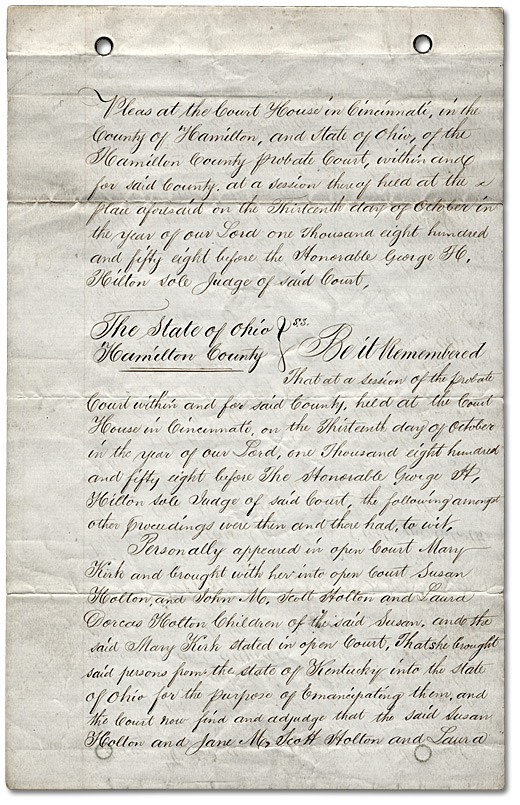 Pleas at the Court House in Cincinnati, in the
County of Hamilton, and State of Ohio, of the
Hamilton County Probate Court, within and
for said County. at a session thereof held at the
place aforesaid on the Thirteenth day of October in
the year of our Lord one Thousand eight hundred
and fifty eight before the Honorable George H.
Hilton sole Judge of said Court,
The State of Ohio } S.S.
Hamilton County } Be it Remembered
That at a session of the Probate
Court within and for said County, held at the Court
House in Cincinnati, on the Thirteenth day of October
in the year of our Lord, one Thousand eight hundred
and fifty eight before The Honorable George H,
Hilton sole Judge of said Court, the following amongst
other Proceedings were then and there had, to wit,
Personally appeared in open Court Mary
Kirk and brought with her into open Court Susan
Holton, and John M. Scott Holton and Laura
Dorcas Holton Children of the said Susan. and the
said Mary Kirk stated in open Court, That she brought
said persons from the state of Kentucky into the state
of Ohio for the purpose of Emancipating them, and
the Court now find and adjudge that the said Susan
Holton and Jane M, Scott Holton and Laura